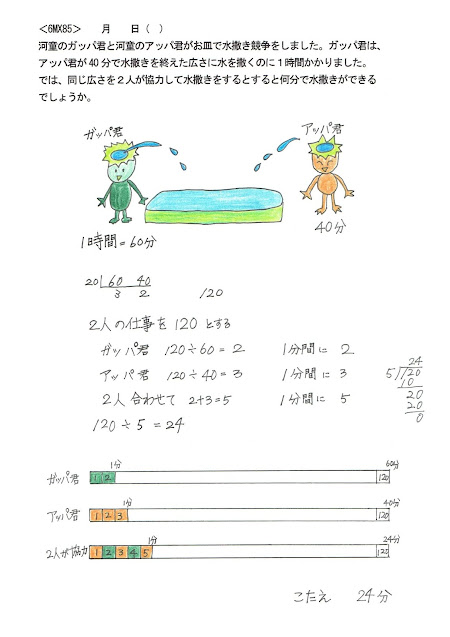 ＜6MX85＞　　月　　日（　）
河童のガッパ君と河童のアッパ君がお皿で水撒き競争をしました。ガッパ君は、
アッパ君が40分で水撒きを終えた広さに水を撒くのに１時間かかりました。
では、同じ広さを２人が協力して水撒きをするとすると何分で水撒きができる
でしょうか。
ガッパ君
アッパ君
40分
1時間=60分
20 60 40
3 2 120
2人の仕事を120とする
ガッパ君 120÷60=2 1分間に 2
アッパ君 120÷40=3 1分間に 3
2人合わせて 2+3=5 1分間に 5
120÷5=24
24
5 120
10
20
20
0
1分 60分
ガッパ君 1 2 120
1分 40分
アッパ君 1 2 3 120
1分 24分
2人が協力 1 2 3 4 5 120
こたえ 24分